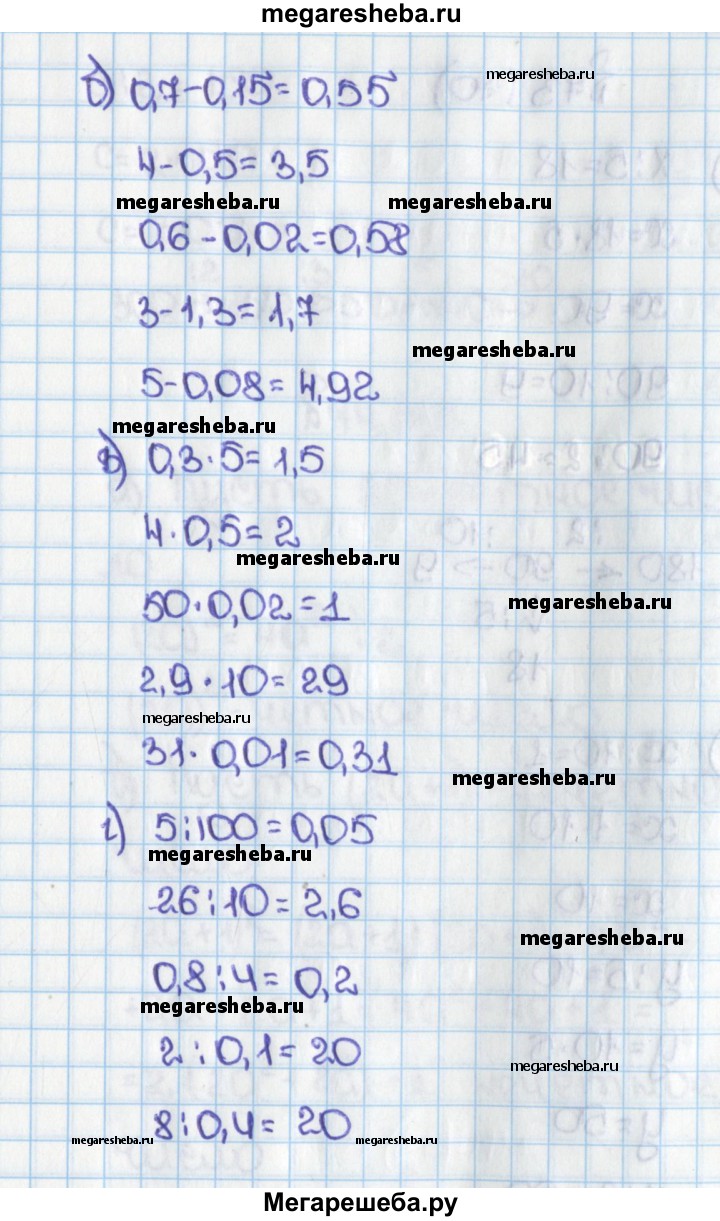 megaresheba.ru
б) 0,7-0,15=0,55
megaresheba.ru
4-0,5=3,5
megaresheba.ru megaresheba.ru
0,6-0,02=0,58
3-1,3=1,7
megaresheba.ru
5-0,08=4,92
megaresheba.ru
в) 0,3·5=1,5
4·0,5=2
megaresheba.ru
50·0,02=1
megaresheba.ru
2,9·10=29
megaresheba.ru
31·0,01=0,31
megaresheba.ru
г) 5:100=0,05
megaresheba.ru
26:10=2,6
megaresheba.ru
0,8:4=0,2
megaresheba.ru
2:0,1=20
megaresheba.ru
8:0,4=20
megaresheba.ru megaresheba.ru
Мегарешеба.ру